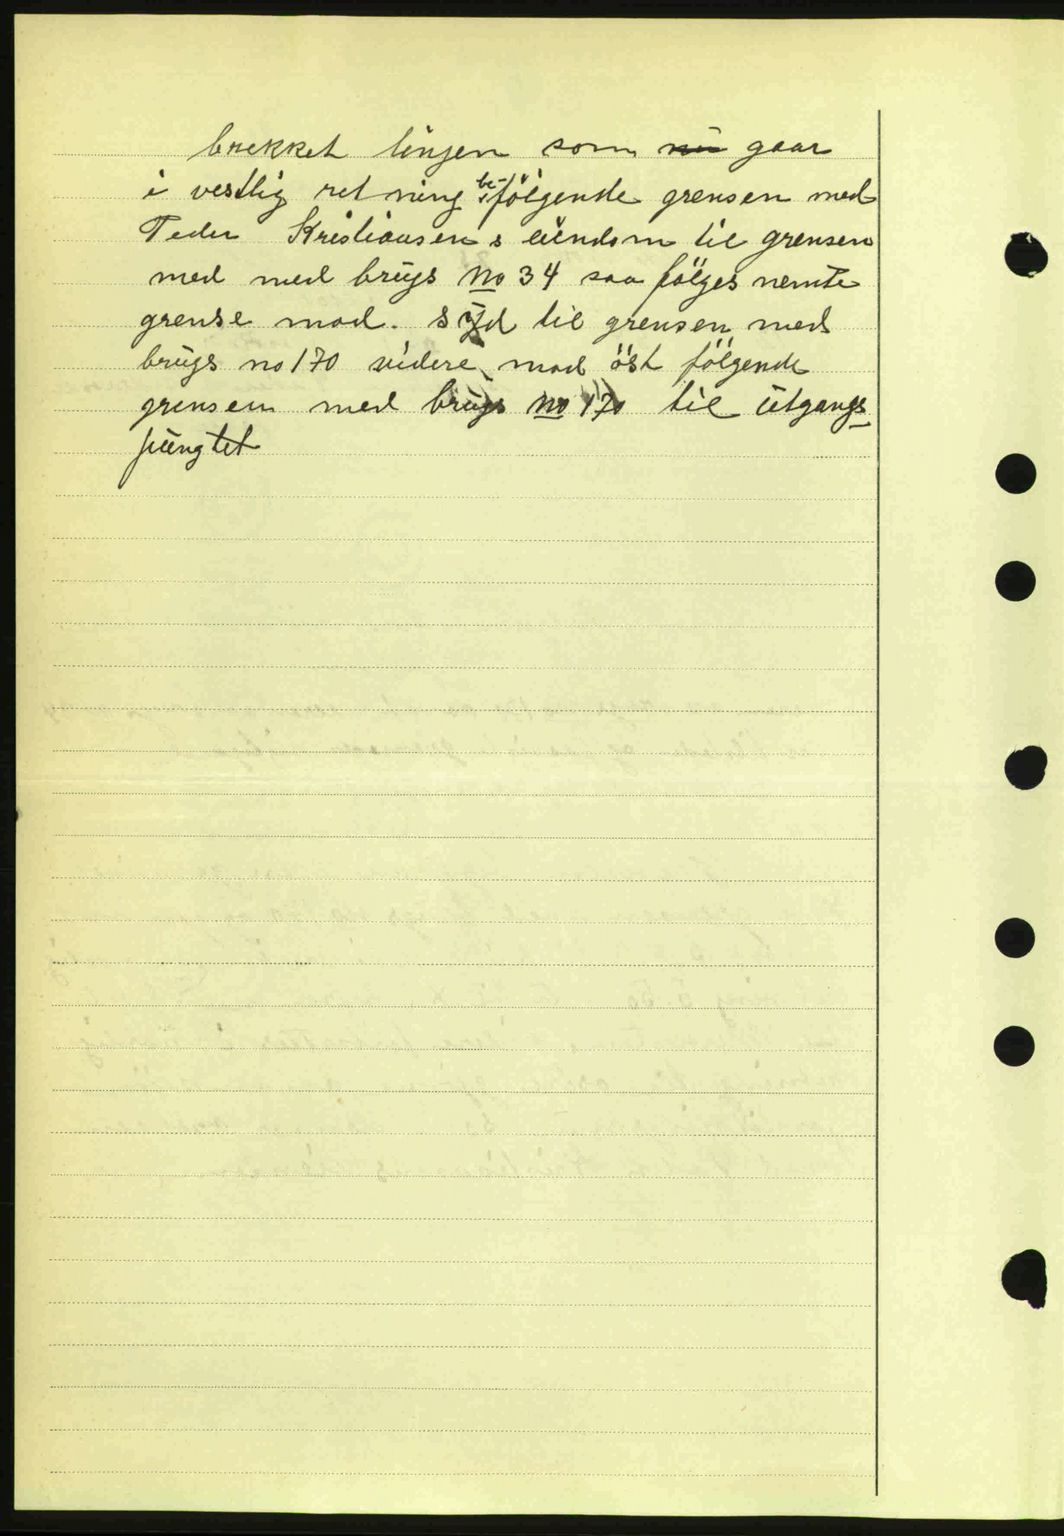 brekket linjen som nu gaar
i vestlig retning be-følgende grensen med
Peder Kristiansens eiendom til grensen
med med brugs no 34 saa følges nemte
grense mod. syd til grensen med
brugs no 170 videre mod øst følgende
grensen med brugs no 170 til utgangs
pungtet